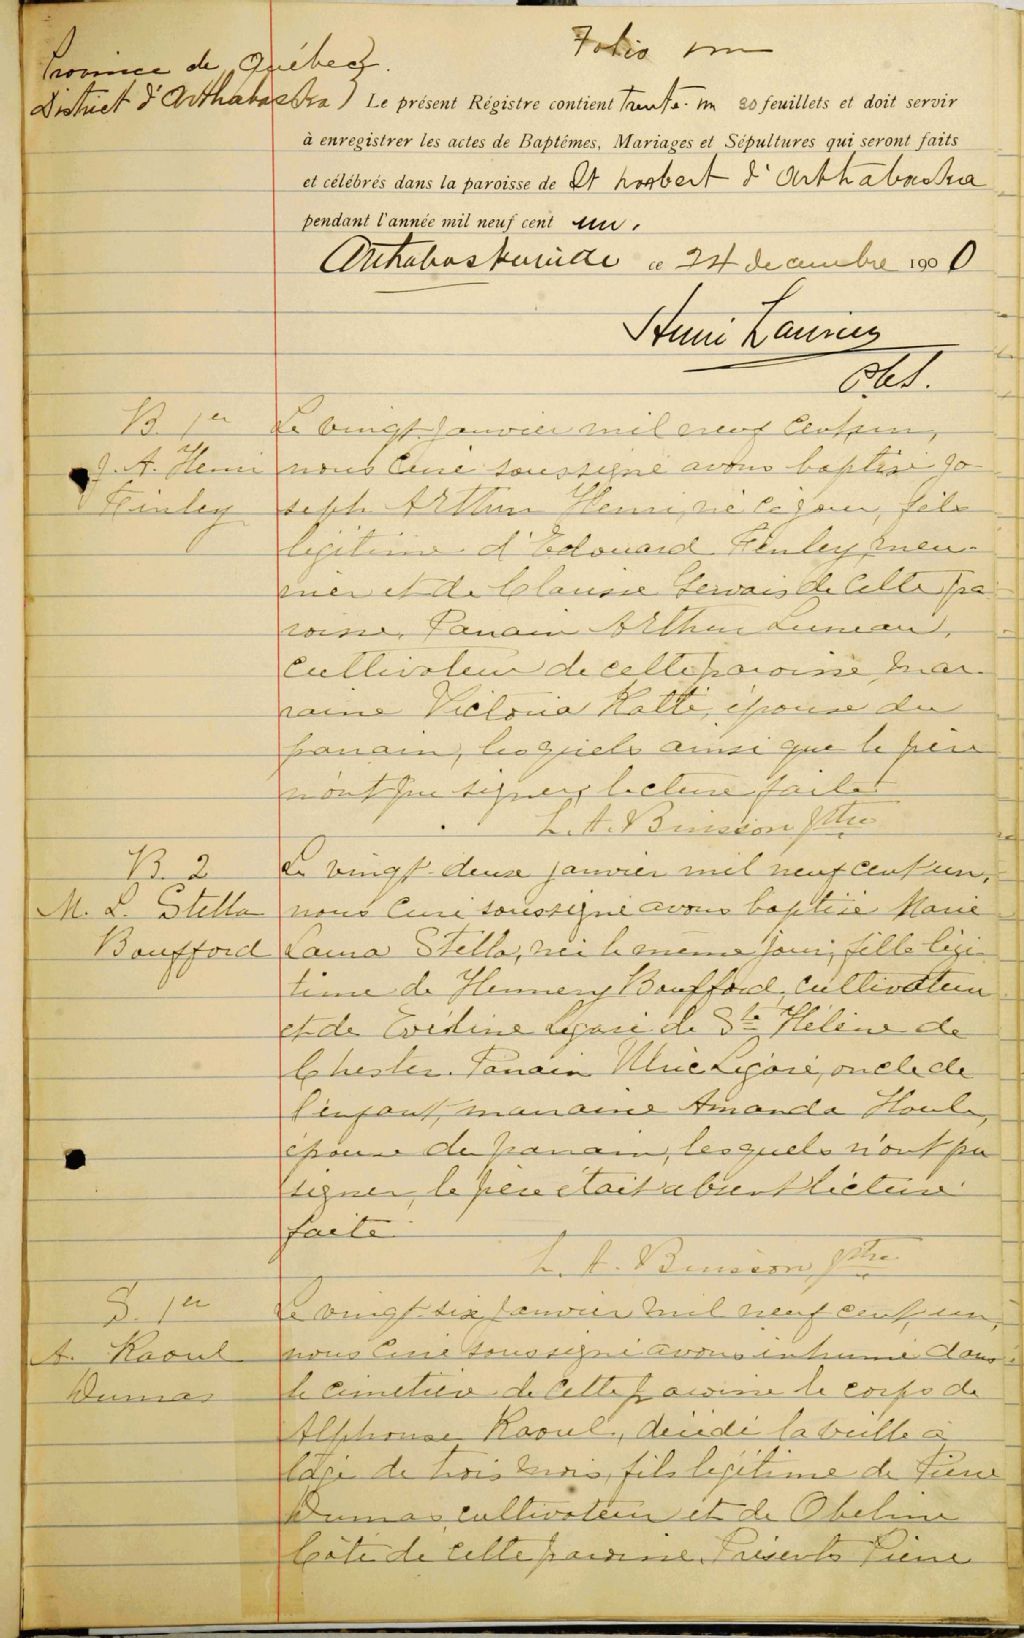 Folio un
Province de Québec
District d'Arthabaska
Le présent Régistre contient trente-un 30 feuillets et doit servir
à enregistrer les actes de Baptêmes, Mariages et Sépultures qui seront faits
et célébrés dans la paroisse de St Norbert d'Arthabaska
pendant l'année mil neuf cent un.
Arthabaskaville ce 24 decembre 1900
Henri Laurier
P.C.S.
B. 1er
J. A. Henri
Finley
Le vingt janvier mil neuf cent un,
nous Curé soussigné avons baptisé Jo-
seph Arthur Henri, né ce jour, fils
légitime d'Edouard Finley, meu-
nier et de Clarisse Gervais de cette pa
roisse. Parrain Arthur Luneau,
cultivateur de cette paroisse, mar-
raine Victoria Hatté, épouse du
parrain, lesquels ainsi que le père
n'ont pu signer, lecture faite.
L. A. Buisson Ptre
B. 2
M. L. Stella
Boufford
Le vingt-deux janvier mil neuf cent un,
nous Curé soussigné avons baptisé Marie
Laura Stella, née le même jour, fille légi-
time de Hennery Boufford, cultivateur
et de Evédine Légaré de Ste Hélène de
Chester. Parrain Ulric Légaré, oncle de
l'enfant, marraine Amanda Houle,
épouse du parrain, lesquels n'ont pu
signer, le père était absent lecture
faite.
L. A. Buisson, Ptre
S. 1er
A. Raoul
Dumas
Le vingt-six janvier mil neuf cent un,
nous Curé soussigné avons inhumé dans
le cimetière de cette paroisse le corps de
Alphonse Raoul, décédé la veille à
l'âge de trois mois, fils légitime de Pierre
Dumas, cultivateur et de Obeline
Côté de cette paroisse. Présents Pierre